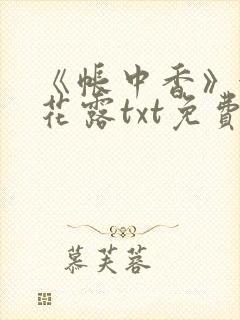 《帐中香》
花露txt免費
慕芙蓉